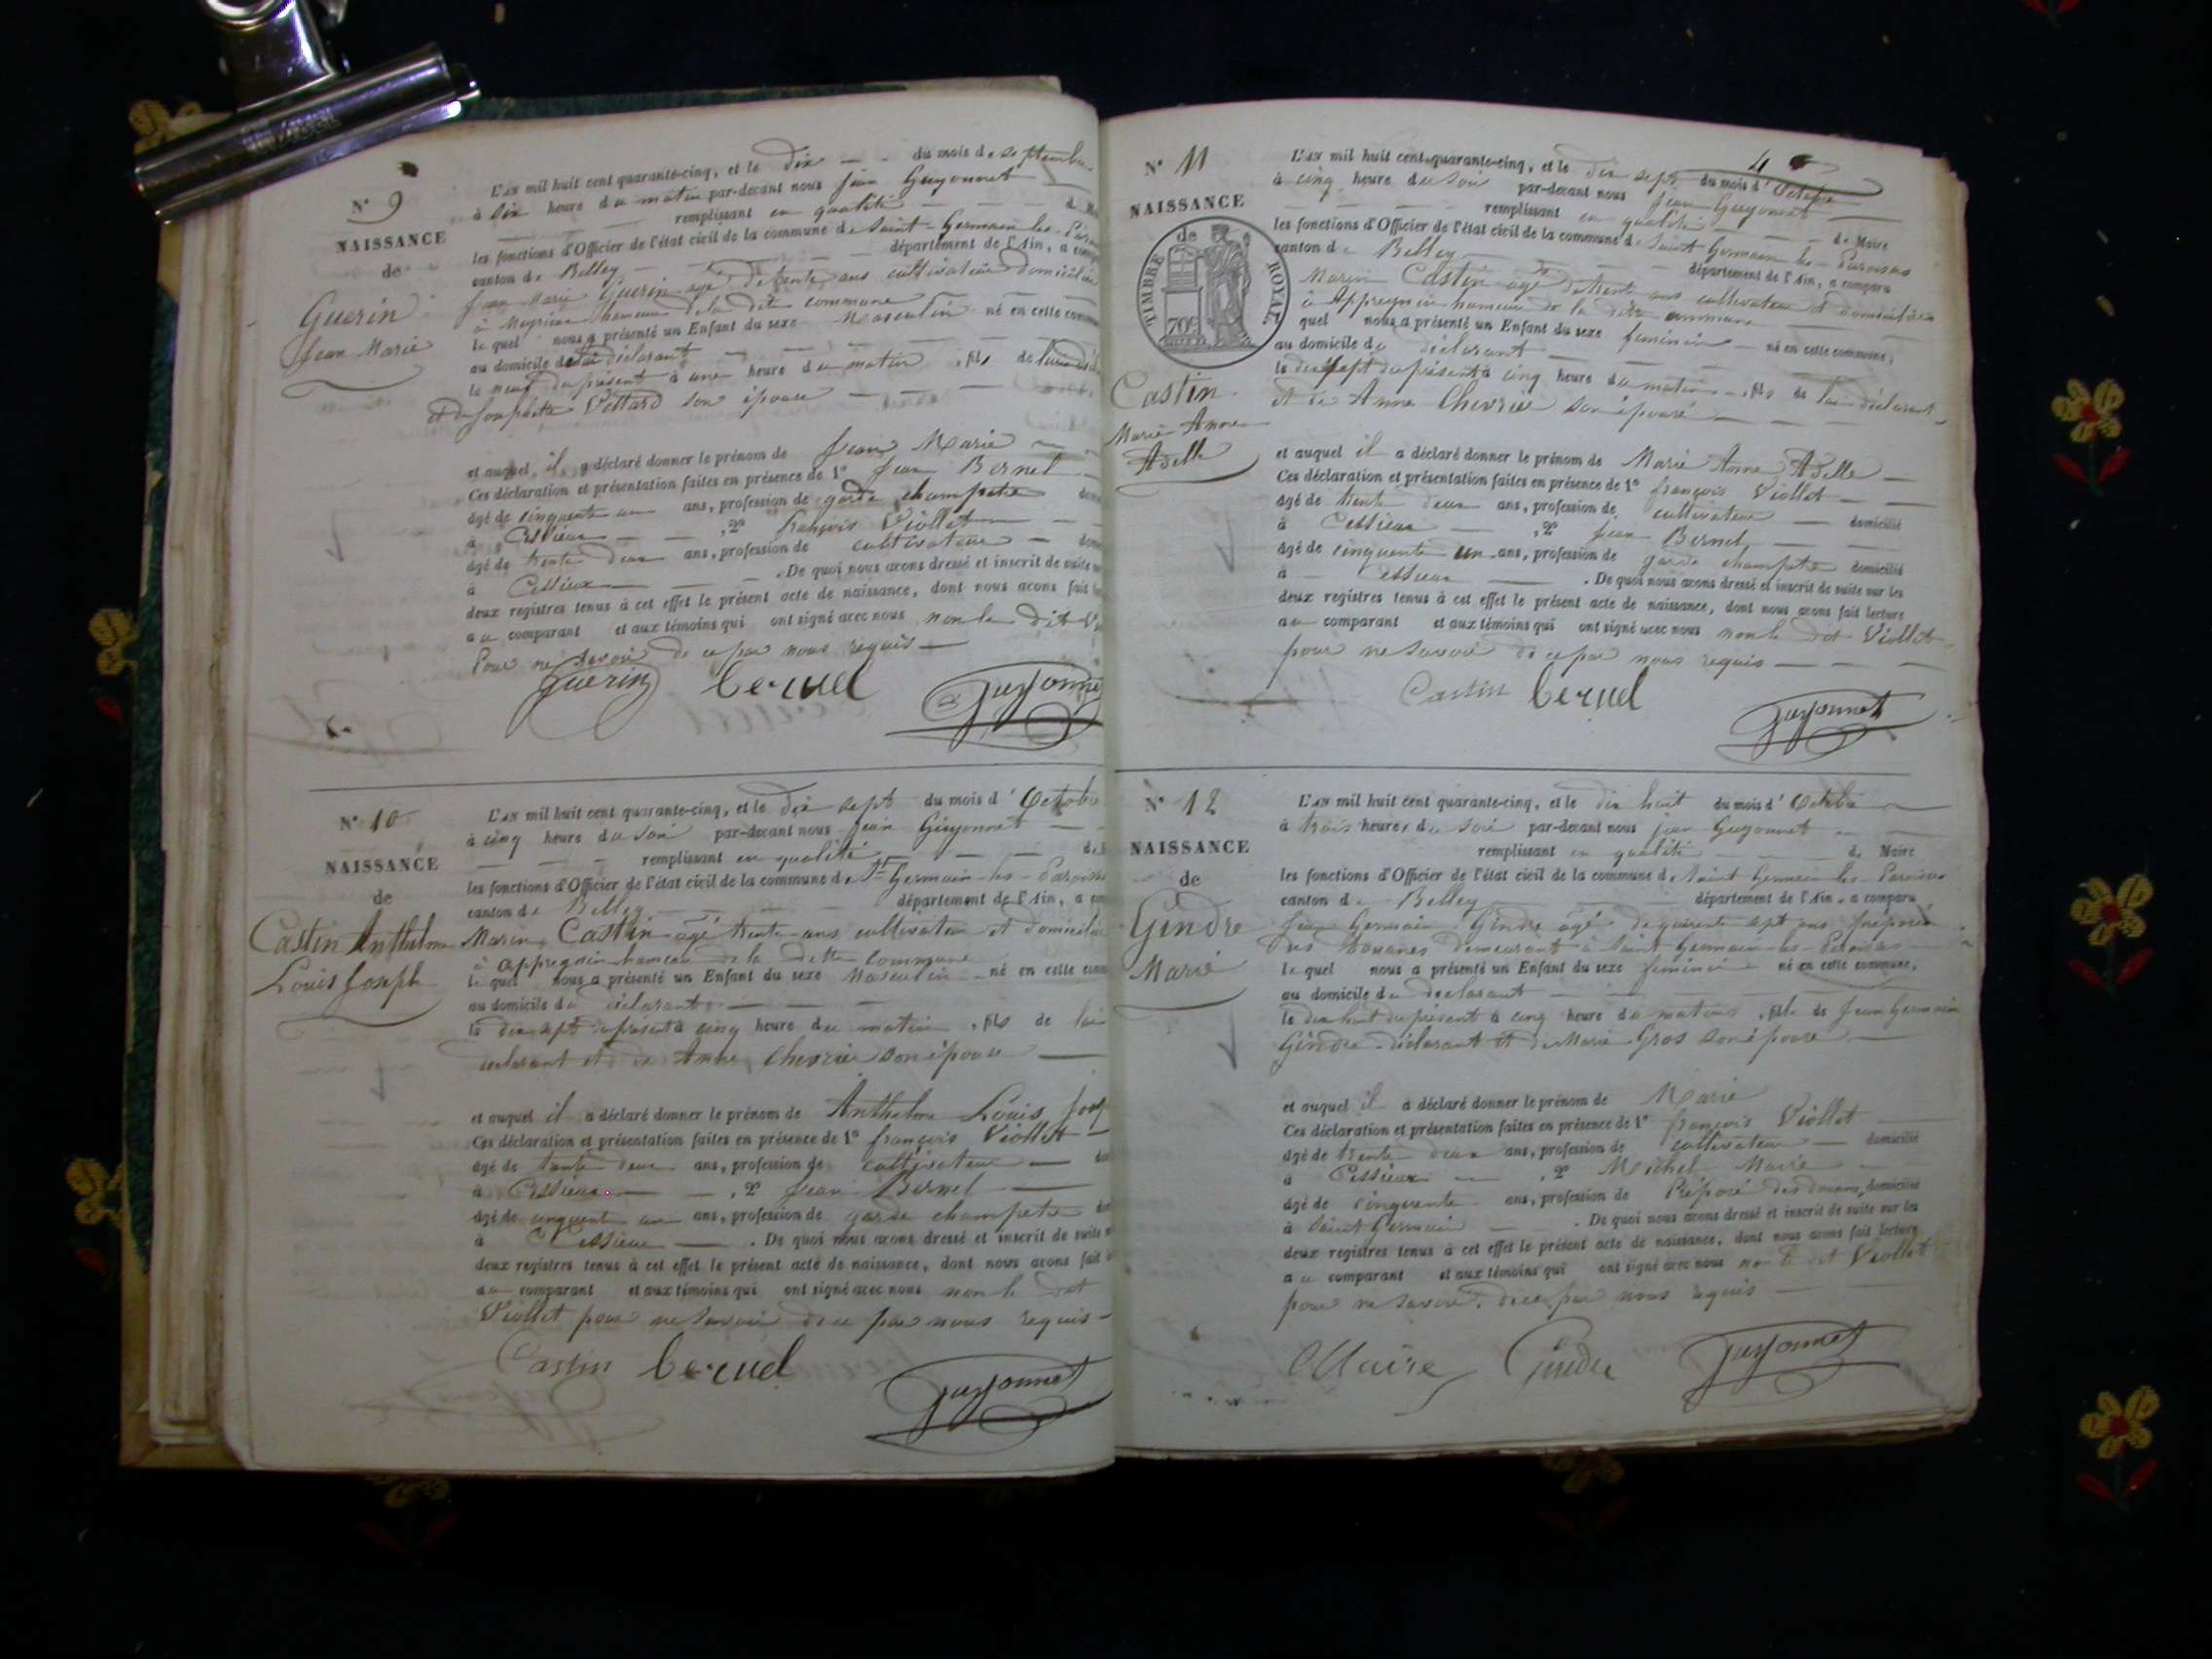 N° 9
NAISSANCE
de
Guerin
Jean Marie
L'AN mil huit cent quarante-cinq, et le dix du mois de septembre
à dix heure du matin par-devant nous Jean Guyonnet
remplissant en qualité de
les fonctions d'Officier de l'état civil de la commune de Saint-Germain-les-
canton de Belley département de l'Ain, a
Jean Marie Guerin agé de trente ans cultivateur domicilié
à hameau de la dite commune
le quel nous a présenté un Enfant du sexe Masculin né en cette
au domicile de lui déclarant
le neuf du présent à une heure du matin, fils de lui
et de Josephte Vettard son épouse
et auquel il a déclaré donner le prénom de Jean Marie
Ces déclaration et présentation faites en présence de 1° Jean Bernel
âgé de cinquante un ans, profession de garde champetre
à Cessieux, 2° françois Viollet
âgé de trente deux ans, profession de cultivateur
à Cessieux. De quoi nous avons dressé et inscrit de suite
deux registres tenus à cet effet le présent acte de naissance, dont nous avons fait
au comparant et aux témoins qui ont signé avec nous non le dit
Pour ne savoir de ce par nous requis
Guerin bernel Guyonnet
N° 10
NAISSANCE
de
Castin Anthelme
Louis Joseph
L'AN mil huit cent quarante-cinq, et le dix sept du mois d'Octobre
à cinq heure du soir par-devant nous Jean Guyonnet
remplissant en qualité de
les fonctions d'Officier de l'état civil de la commune de St Germain-les-Paroisses
canton de Belley département de l'Ain, a
Marin Castin agé trente ans cultivateur et domicilié
à appregnin hameau de la dette commune
le quel nous a présenté un Enfant du sexe Masculin né en cette
au domicile du déclarant
le dix sept du présent à cinq heure du matin, fils de lui
declarant et de Anne Chevrier son épouse
et auquel il a déclaré donner le prénom de Anthelme Louis
Ces déclaration et présentation faites en présence de 1° françois Viollet
âgé de trente deux ans, profession de cultivateur
à Cessieux, 2° Jean Bernel
âgé de cinquante un ans, profession de garde champetre
à Cessieux. De quoi nous avons dressé et inscrit de suite
deux registres tenus à cet effet le présent acte de naissance, dont nous avons fait
au comparant et aux témoins qui ont signé avec nous non le dit
Viollet pour ne savoir de ce par nous requis
Castin bernel Guyonnet
4
N° 11
NAISSANCE
de
TIMBRE ROYAL
70c
Castin
Marie Anne
Adelle
L'AN mil huit cent quarante-cinq, et le dix sept du mois d'Octobre
à cinq heure du soir par-devant nous Jean Guyonnet
remplissant en qualité de Maire
les fonctions d'Officier de l'état civil de la commune de Saint Germain les Paroisses
canton de Belley département de l'Ain, a comparu
Marin Castin agé de trente ans cultivateur et domicilié
à Appregnin hameau de la dette commune
quel nous a présenté un Enfant du sexe feminin né en cette commune,
au domicile du déclarant
le dix sept du présent à cinq heure du matin, fils de lui déclarant
et de Anne Chevrier son épouse
et auquel il a déclaré donner le prénom de Marie Anne Adelle
Ces déclaration et présentation faites en présence de 1° françois Viollet
âgé de trente deux ans, profession de cultivateur domicilié
à Cessieux, 2° Jean Bernel
âgé de cinquante un ans, profession de garde champetre domicilié
à Cessieux. De quoi nous avons dressé et inscrit de suite sur les
deux registres tenus à cet effet le présent acte de naissance, dont nous avons fait lecture
au comparant et aux témoins qui ont signé avec nous non le dit Viollet
pour ne savoir de ce par nous requis
Castin bernel Guyonnet
N° 12
NAISSANCE
de
Gindre
Marie
L'AN mil huit cent quarante-cinq, et le dix huit du mois d'Octobre
à trois heures du soir par-devant nous jean Guyonnet
remplissant en qualité de Maire
les fonctions d'Officier de l'état civil de la commune de Saint Germain les Paroisses
canton de Belley département de l'Ain, a comparu
Jean Germain Gindre agé de quarente sept ans Préposé
des douanes demeurant à Saint Germain les Paroisses
le quel nous a présenté un Enfant du sexe feminin né en cette commune,
au domicile du declarant
le dix huit du présent à cinq heure du matin, fils de Jean Germain
Gindre déclarant et de Marie Gros son épouse
et auquel il a déclaré donner le prénom de Marie
Ces déclaration et présentation faites en présence de 1° françois Viollet
âgé de trente deux ans, profession de cultivateur domicilié
à Cessieux, 2° Michel Maire
âgé de cinquente ans, profession de Préposé des douanes domicilié
à Saint Germain. De quoi nous avons dressé et inscrit de suite sur les
deux registres tenus à cet effet le présent acte de naissance, dont nous avons fait lecture
au comparant et aux témoins qui ont signé avec nous non le dit Viollet
pour ne savoir de ce par nous requis
Maire Gindre Guyonnet